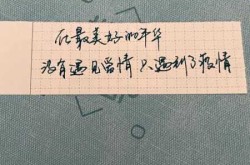 在最美好的年华
没有遇见爱情 只遇到了疫情